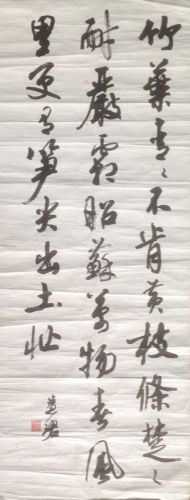 竹葉青〻不肯黄枝條楚〻
耐嚴霜昭蘇萬物春風
里更有笋尖出土忙